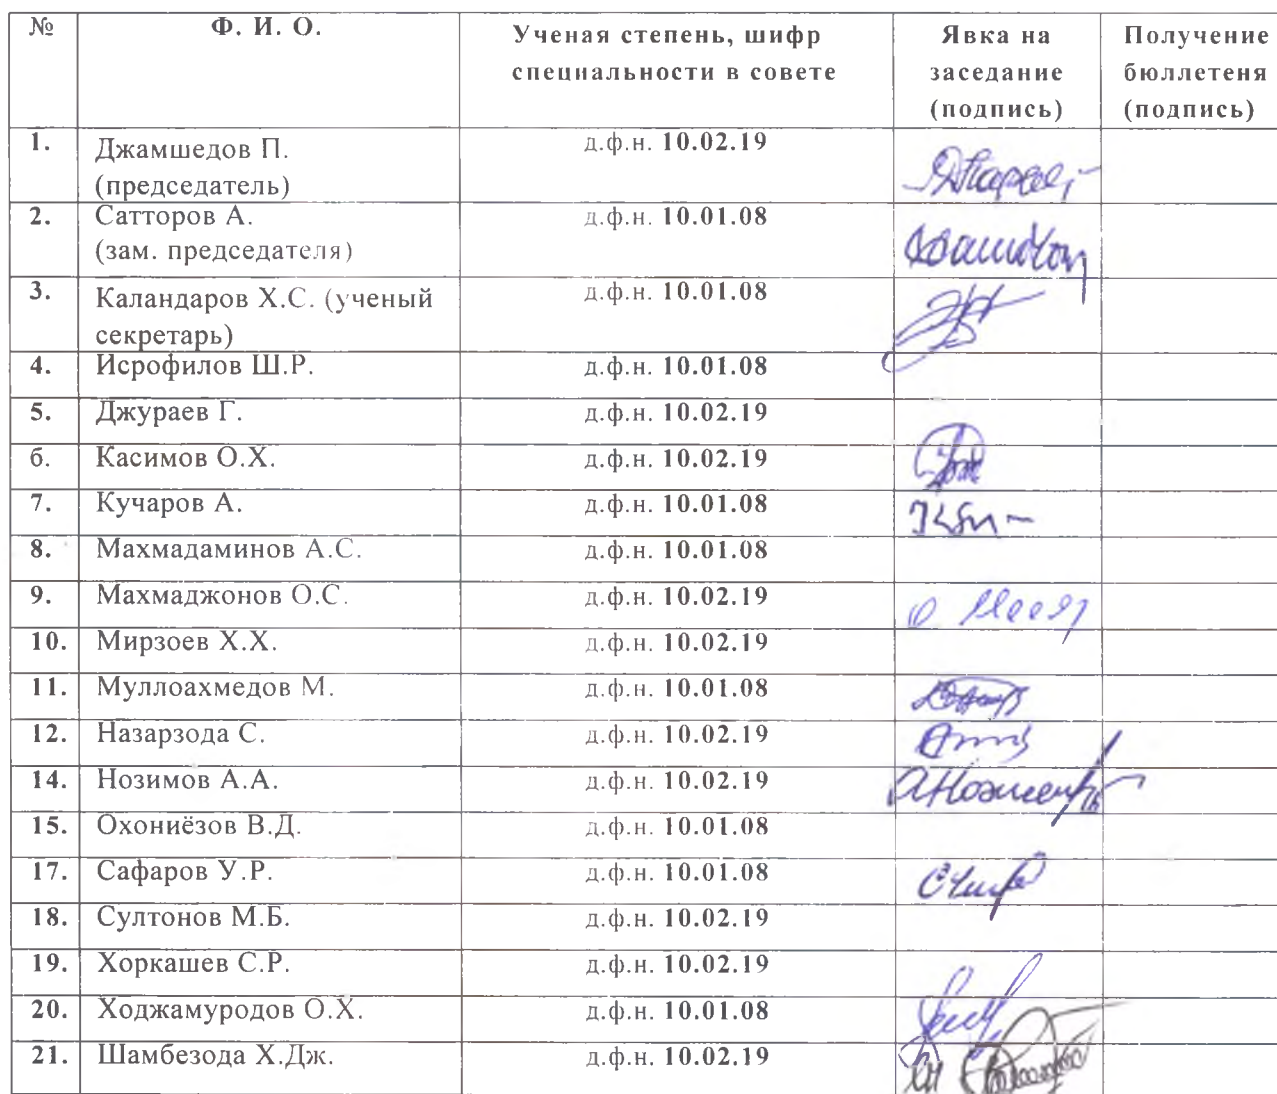 № Ф. И. О. Ученая степень, шифр специальности в совете Явка на заседание (подпись) Получение бюллетеня (подпись)
1. Джамшедов П. (председатель) д.ф.н. 10.02.19
2. Сатторов А. (зам. председателя) д.ф.н. 10.01.08
3. Каландаров Х.С. (ученый секретарь) д.ф.н. 10.01.08
4. Исрофилов Ш.Р. д.ф.н. 10.01.08
5. Джураев Г. д.ф.н. 10.02.19
6. Касимов О.Х. д.ф.н. 10.02.19
7. Кучаров А. д.ф.н. 10.01.08
8. Махмадаминов А.С. д.ф.н. 10.01.08
9. Махмаджонов О.С. д.ф.н. 10.02.19
10. Мирзоев Х.Х. д.ф.н. 10.02.19
11. Муллоахмедов М. д.ф.н. 10.01.08
12. Назарзода С. д.ф.н. 10.02.19
14. Нозимов А.А. д.ф.н. 10.02.19
15. Охониёзов В.Д. д.ф.н. 10.01.08
17. Сафаров У.Р. д.ф.н. 10.01.08
18. Султонов М.Б. д.ф.н. 10.02.19
19. Хоркашев С.Р. д.ф.н. 10.02.19
20. Ходжамуродов О.Х. д.ф.н. 10.01.08
21. Шамбезода Х.Дж. д.ф.н. 10.02.19